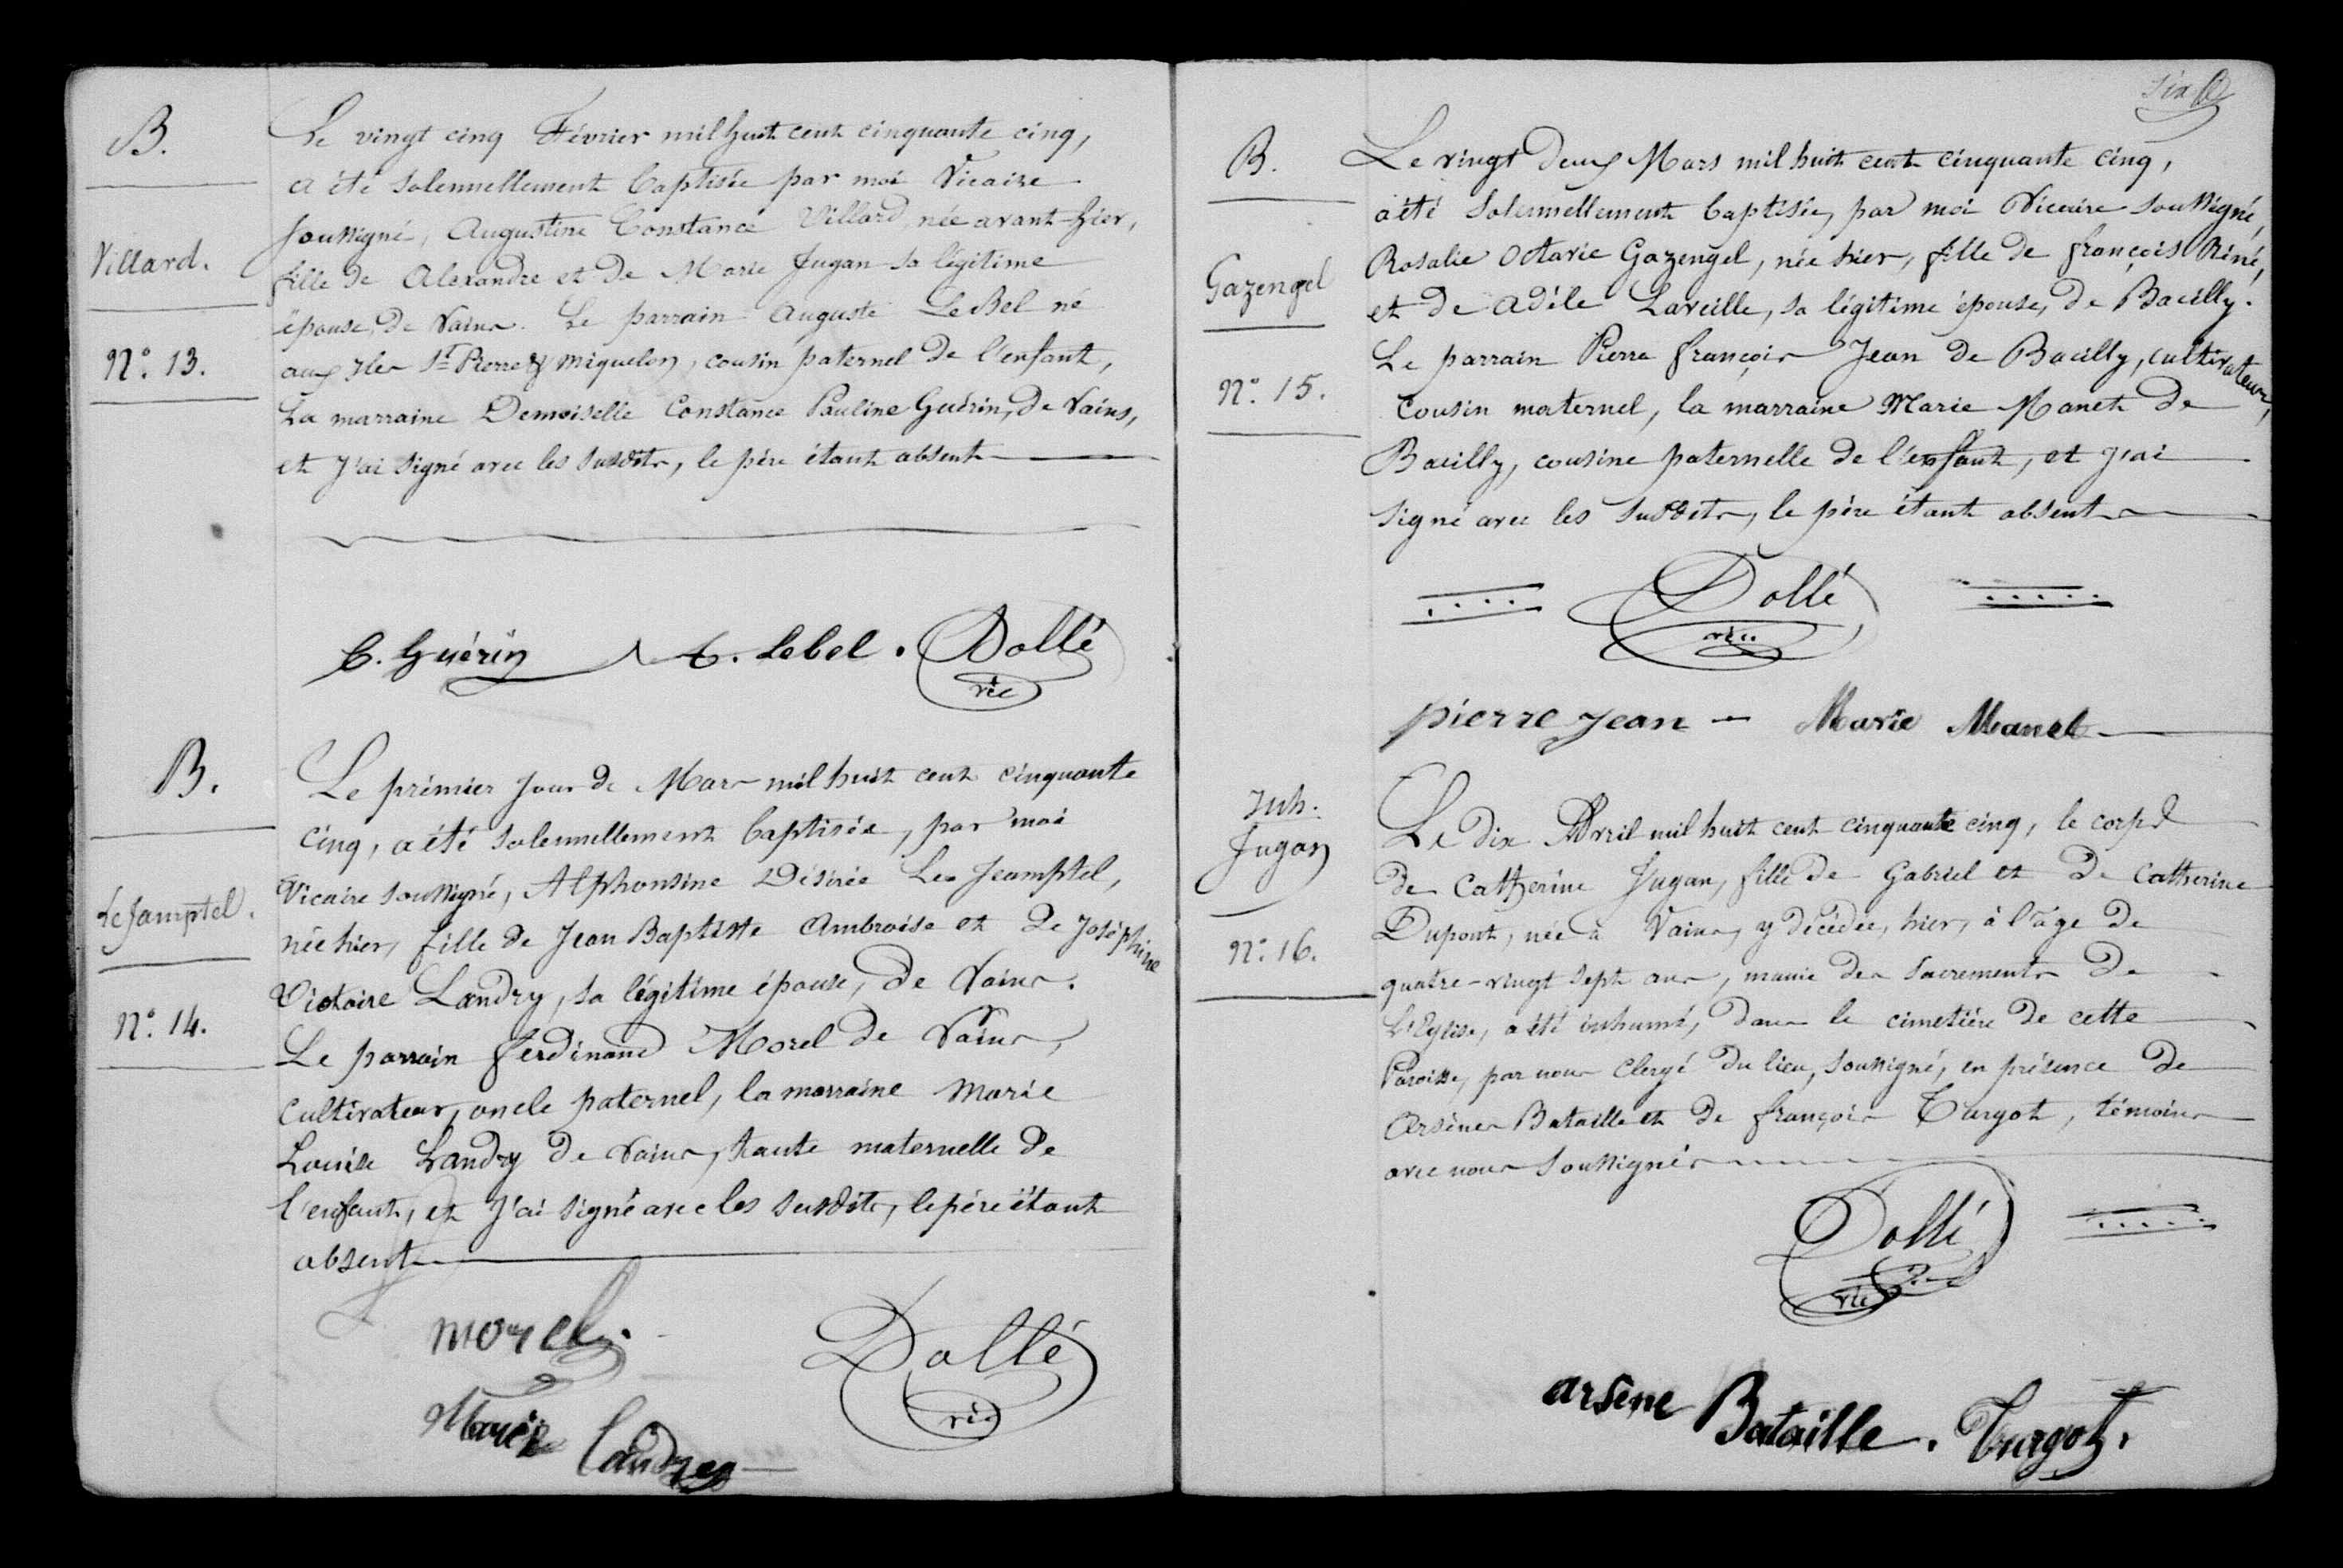 B.
Villard.
N.° 13.
Le vingt cinq Février mil huit cent cinquante cinq,
a été solennellement baptisée par moi Vicaire
soussigné, Augustine Constance Villard, née avant-hier,
fille de Alexandre et de Marie Jugan sa légitime
épouse, de Vains. Le parrain Auguste LeBel né
aux Iles St Pierre & Miquelon, cousin paternel de l'enfant,
La marraine Demoiselle Constance Pauline Guérin, de Vains,
et j'ai signé avec les susdits, le père étant absent
C. Guérin A. Lebel. Dollé
vic
B.
LeJamptel.
N.° 14.
Le prémier jour de Mars mil huit cent cinquante
cinq, a été solennellement baptisée, par moi
Vicaire soussigné, Alphonsine Désirée Le Jeamptel,
née hier, fille de Jean Baptiste Ambroise et de Joséphine
Victoire Landry, sa légitime épouse, de Vains.
Le parrain ferdinand Morel de Vains,
cultivateur, oncle paternel, la marraine Marie
Louise Landry de Vains, tante maternelle de
l'enfant, et j'ai signé avec les susdits, le père étant
absent
morel. Dollé
vic
Marie Landry
Six
B.
Gazengel
N.° 15.
Le vingt deux Mars mil huit cent cinquante cinq,
a été solennellement baptisée, par moi Vicaire soussigné,
Rosalie Octavie Gazengel, née hier, fille de françois Réné,
et de Adèle Laveille, sa légitime épouse, de Bacilly.
Le parrain Pierre françois Jean de Bacilly, cultivateur,
cousin maternel, la marraine Marie Manet de
Bacilly, cousine paternelle de l'enfant, et j'ai
signé avec les susdits, le père étant absent
Dollé
vic
pierre jean Marie Manet
Inh.
Jugan
N.° 16.
Le dix Avril mil huit cent cinquante cinq, le corps
de Catherine Jugan, fille de Gabriel et de Catherine
Dupont, née à Vains, y décédée, hier, à l'âge de
quatre-vingt sept ans, munie des sacrements de
l'Eglise, a été inhumé, dans le cimetière de cette
Paroisse, par nous Clergé du lieu, soussigné, en présence de
Arsène Bataille et de françois Turgot, témoins
avec nous soussignés
Dollé
vic
arsène Bataille. Turgot.